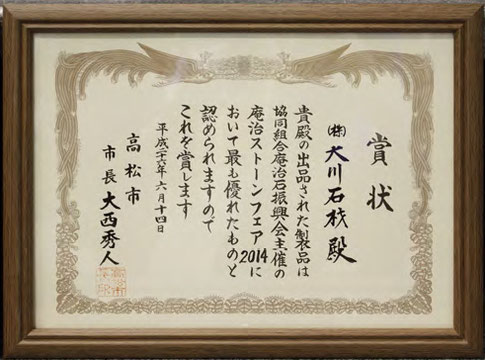 賞状
㈱大川石材殿
貴殿の出品された製品は
協同組合庵治石振興会主催の
庵治ストーンフェア2014に
おいて最も優れたものと
認められますので
これを賞します
平成二十六年六月十四日
高松市
市長 大西秀人